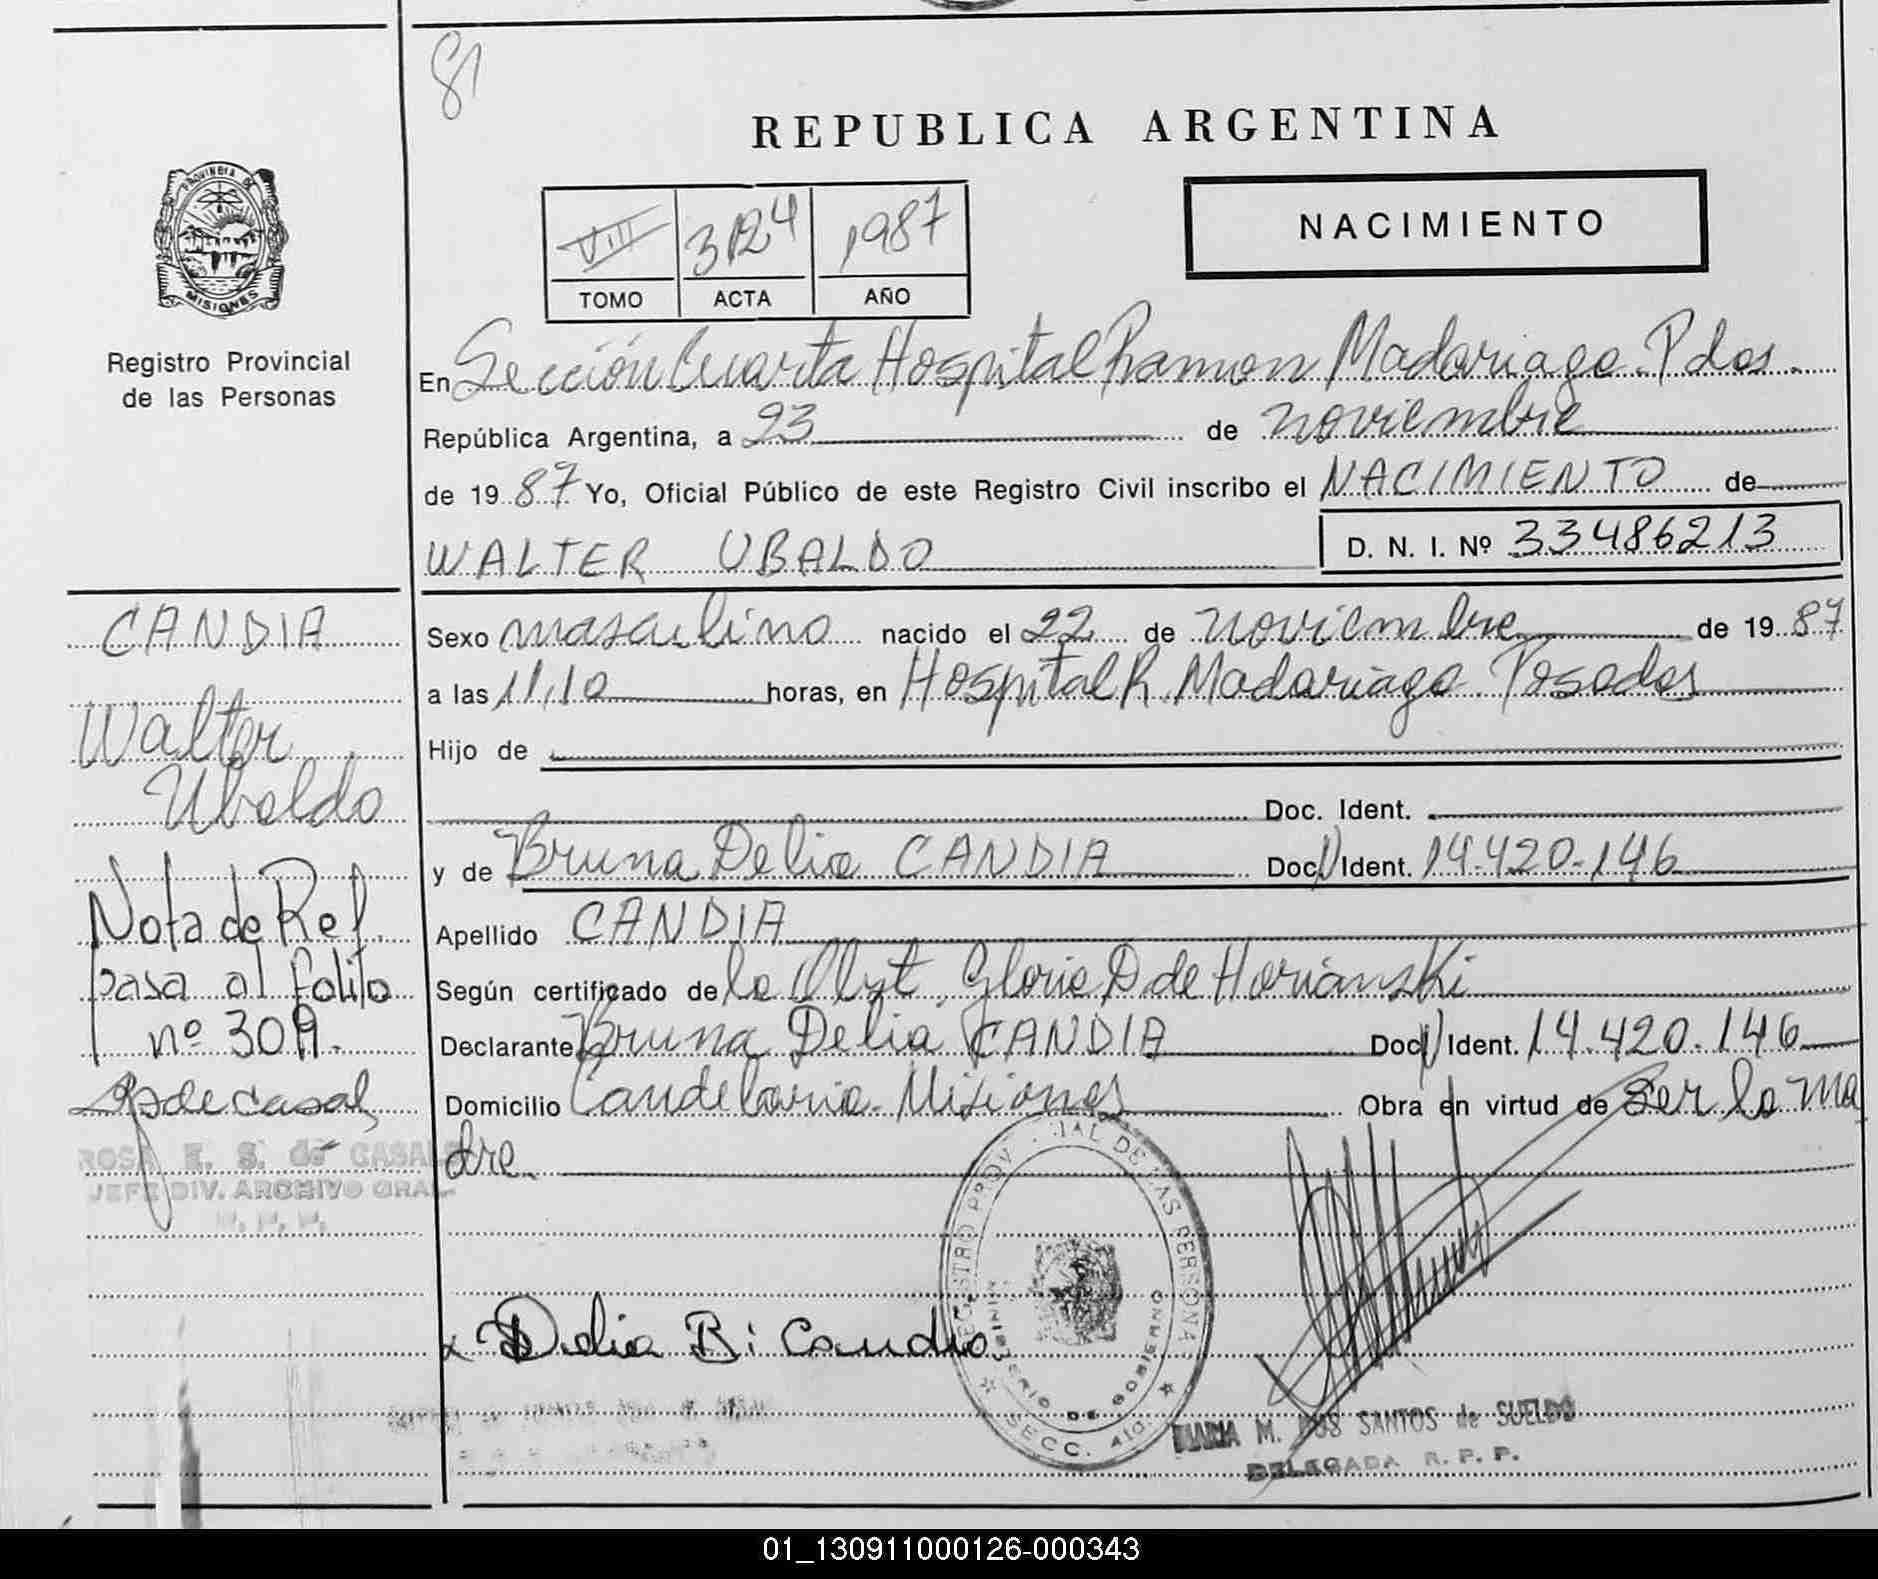 81
REPUBLICA ARGENTINA
PROVINCIA DE
MISIONES
Registro Provincial
de las Personas
VIII 3124 1987
TOMO ACTA AÑO
NACIMIENTO
En Sección Cuarta Hospital Ramon Madariaga. Pdas.
República Argentina, a 23 de noviembre
de 19 87 Yo, Oficial Público de este Registro Civil inscribo el NACIMIENTO de
WALTER UBALDO D. N. I. Nº 33486213
CANDIA
Walter
Ubaldo
Nota de Ref.
pasa al folio
nº 30A.
ROSA E. S. de CASAL
JEFE DIV. ARCHIVO GRAL.
R. P. P.
Sexo masculino nacido el 22 de noviembre de 19 87
a las 11,10 horas, en Hospital R. Madariaga. Posadas
Hijo de
Doc. Ident.
y de Bruna Delia CANDIA Doc. Ident. 14.420.146
Apellido CANDIA
Según certificado de la Obst. Gloria D de Horianski
Declarante Bruna Delia CANDIA Doc. Ident. 14.420.146
Domicilio Candelaria. Misiones Obra en virtud de ser la ma
dre.
x Delia B. Candia
REGISTRO PROVINCIAL DE LAS PERSONAS
MINISTERIO DE GOBIERNO
SECC. 4ta
MARIA M. DOS SANTOS de SUELDO
DELEGADA R. P. P.
01_130911000126-000343